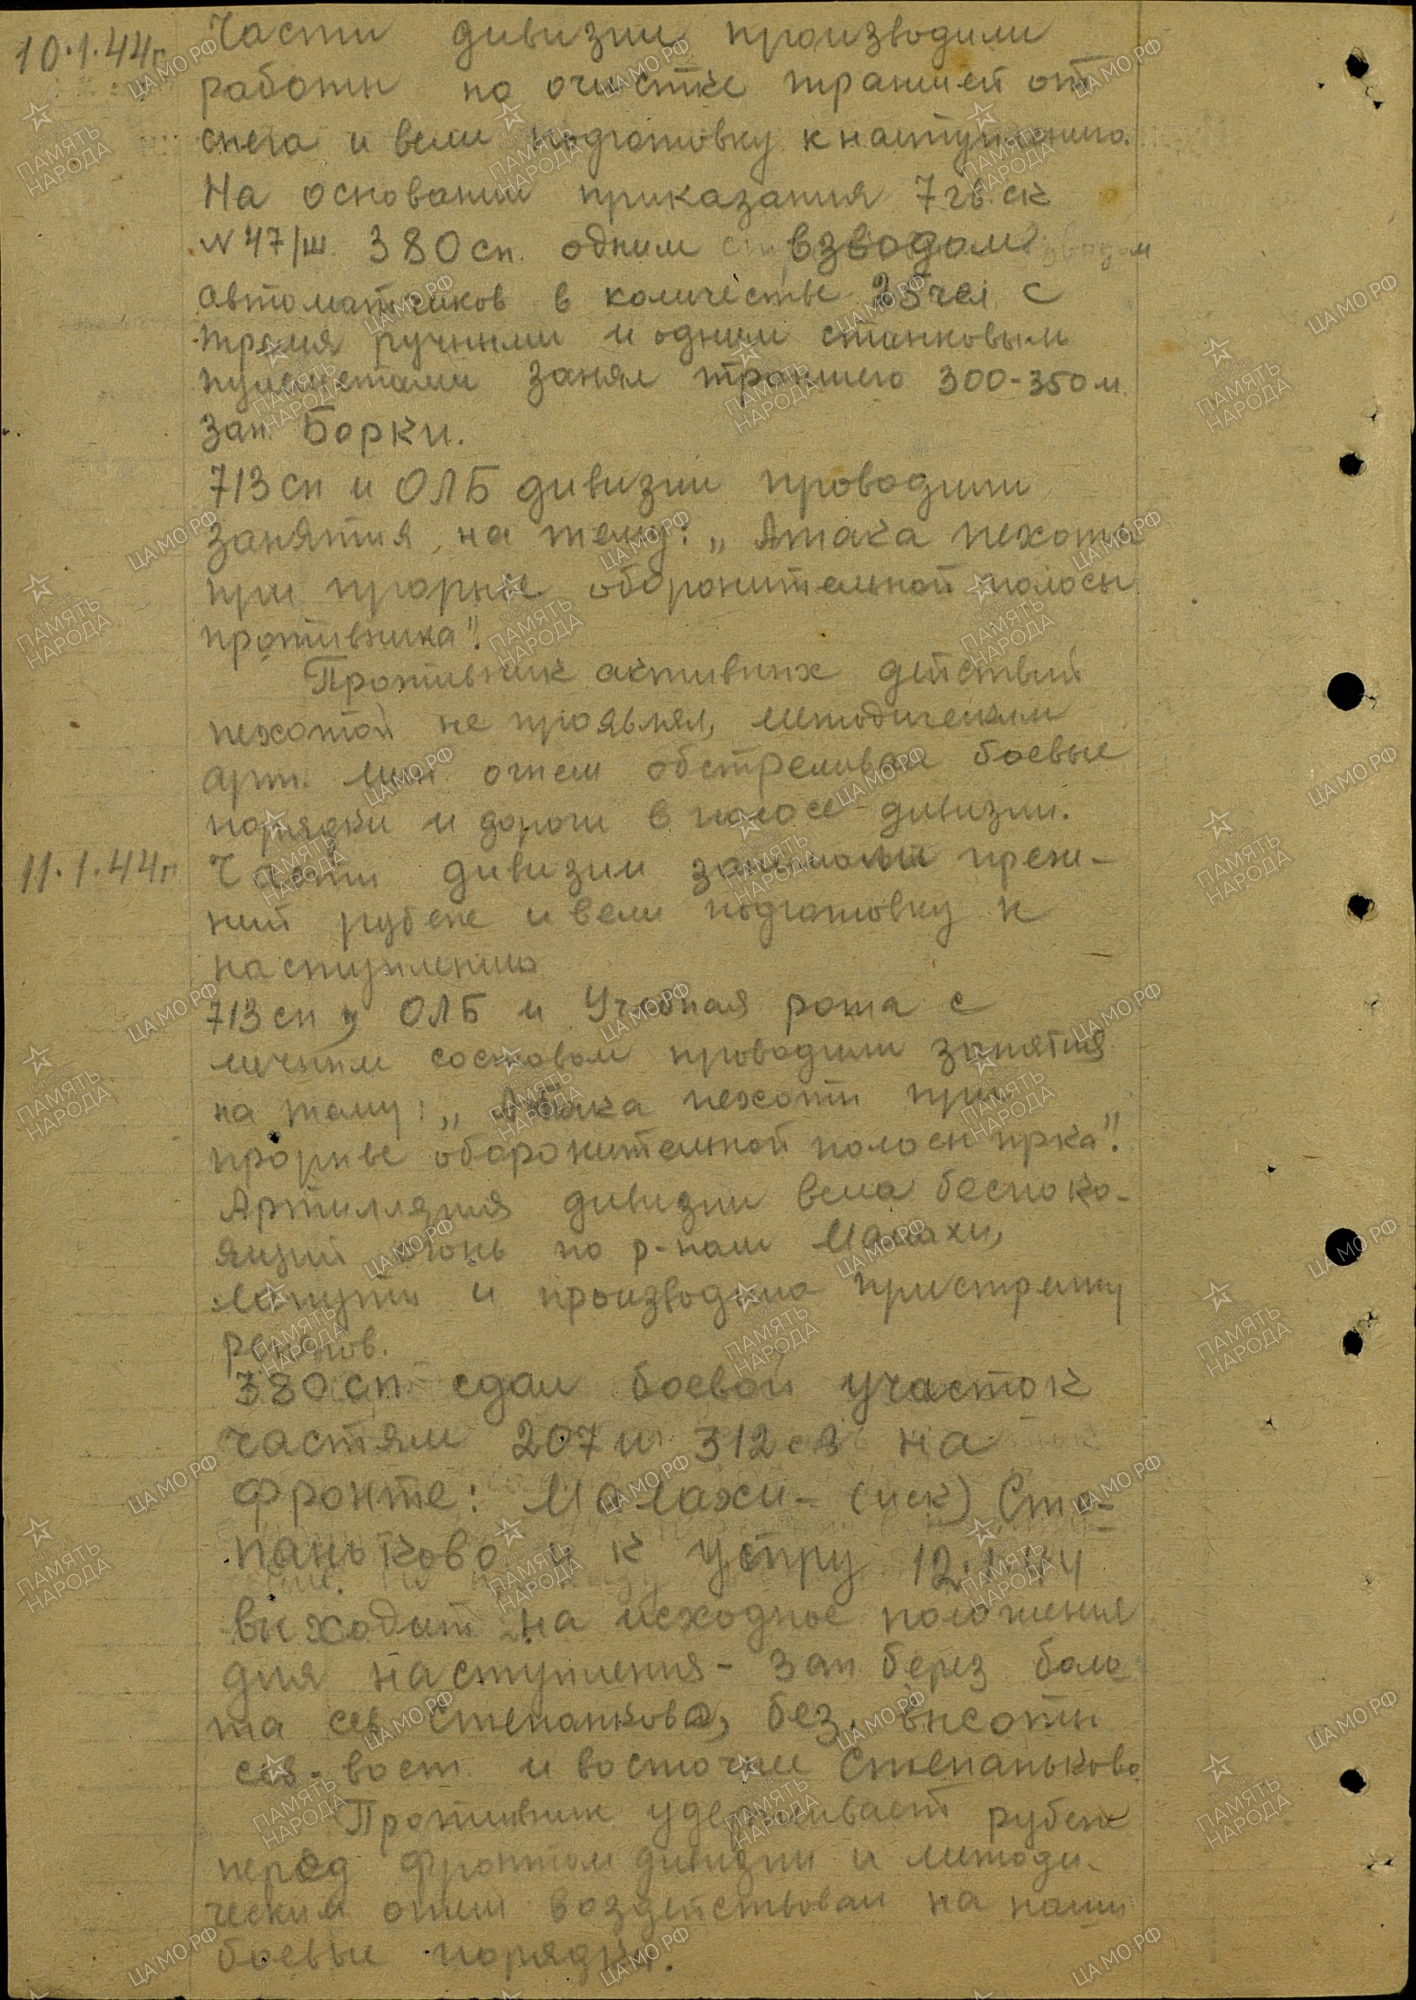 10.1.44г. Части дивизии производили
работы по очистке траншей от
снега и вели подготовку к наступлению.
На основании приказания 7 гв. ск
N 47/ш. 380 сп. одним взводом
автоматчиков в количестве 25 чел с
тремя ручными и одним станковым
пулеметами занял траншею 300-350 м.
зап. Борки.
713 сп и ОЛБ дивизии проводили
занятия, на тему: „Атака пехоты
при прорыве оборонительной полосы
противника".
Противник активных действий
пехотой не проявлял, методическим
арт. мин огнем обстреливал боевые
порядки и дороги в полосе дивизии.
11.1.44г. Части дивизии занимали преж-
ний рубеж и вели подготовку к
наступлению
713 сп, ОЛБ и Учебная рота с
личным составом проводили занятия
на тему: „Атака пехоты при
прорыве оборонительной полосы пр-ка".
Артиллерия дивизии вела беспоко-
ящий огонь по р-нам Малахи,
Лапути и производила пристрелку
реперов.
380 сп сдал боевой участок
частям 207 и 312 сд на
фронте: Малахи - (иск) Сте-
паньково и к утру 12.1.44
выходит на исходное положения
для наступления - зап берез боло
та сев Степанкова, без. высоты
сев-вост. и восточнее Степаньково
Противник удерживает рубеж
перед фронтом дивизии и методи-
ческим огнем воздействовал на наши
боевые порядки.
ЦАМО РФ
ПАМЯТЬ
НАРОДА